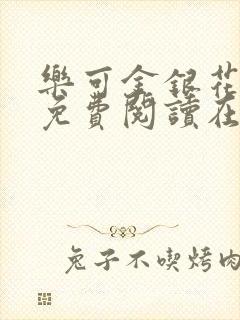 樂可金銀花
免費閱讀在
兔子不喫烤肉